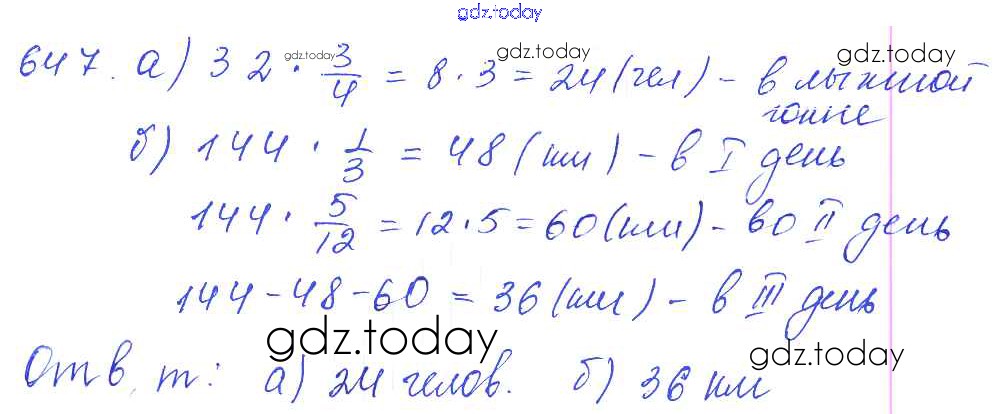 gdz.today
647. а) 32 · 3/4 = 8 · 3 = 24 (чел) - в лыжной
гонке
б) 144 · 1/3 = 48 (км) - в I день
144 · 5/12 = 12 · 5 = 60 (км) - во II день
144 - 48 - 60 = 36 (км) - в III день
Отв. т: а) 24 челов. б) 36 км
gdz.today
gdz.today
gdz.today
gdz.today
gdz.today